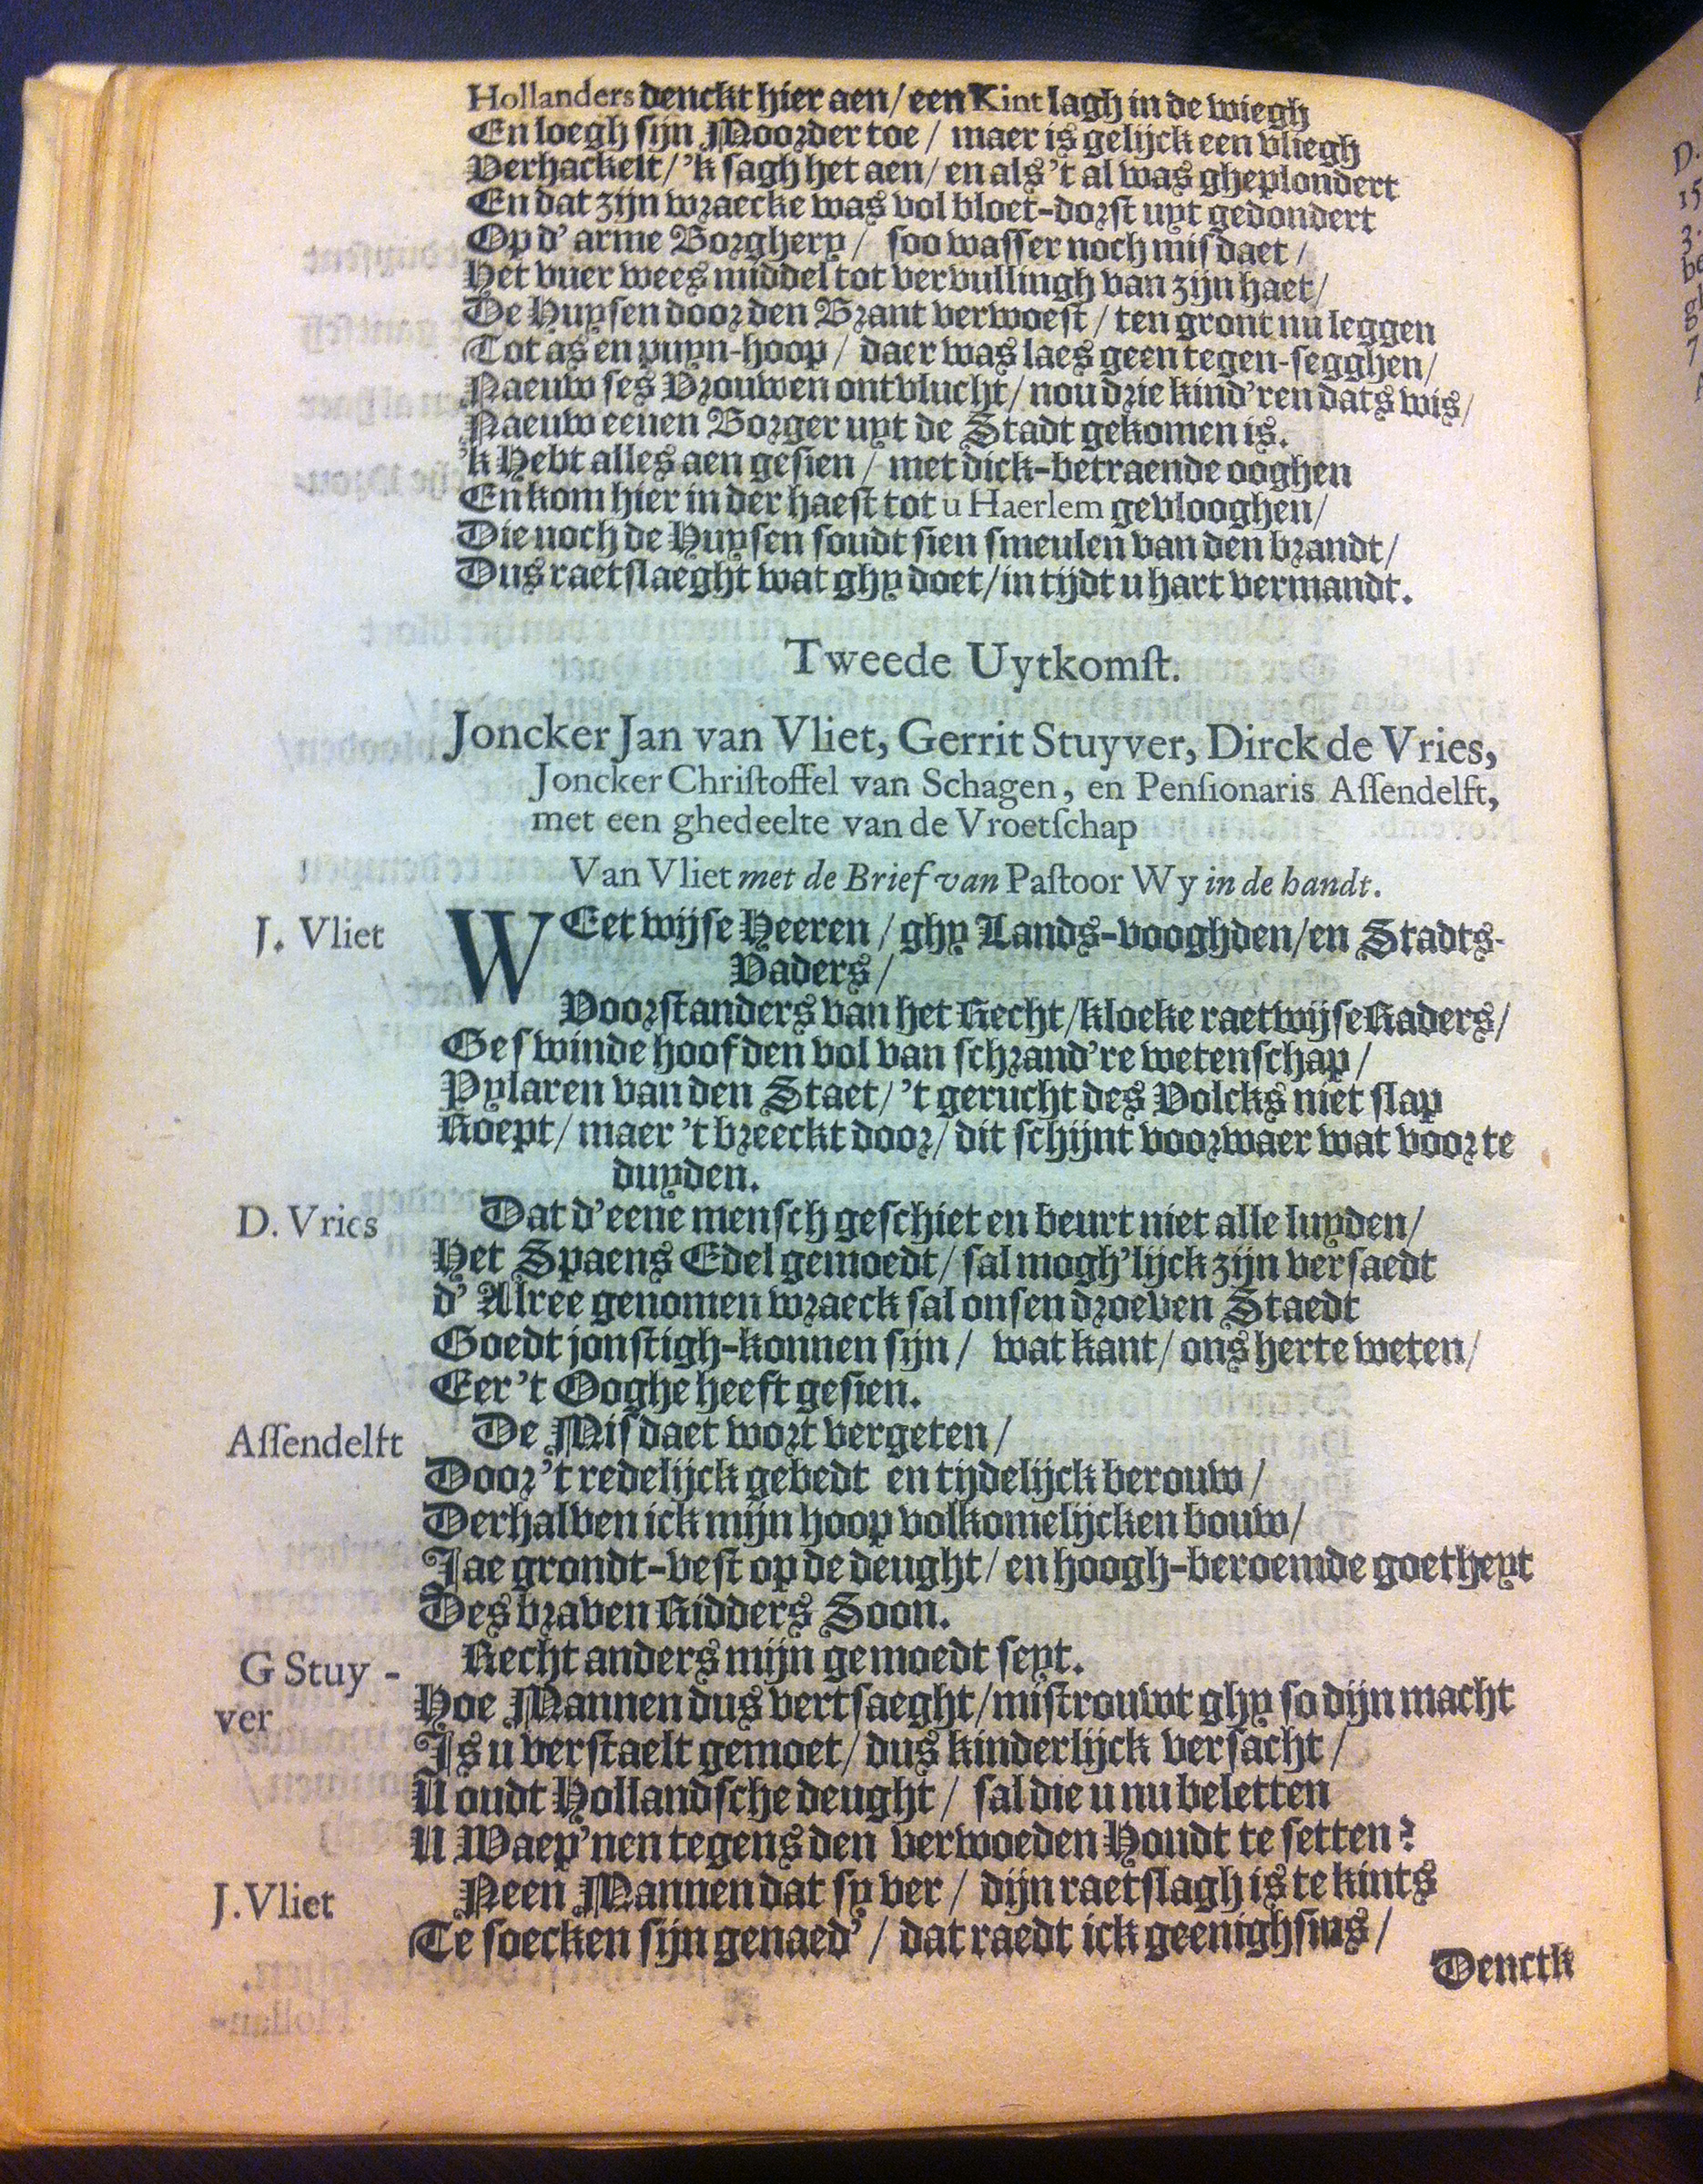 Hollanders denckt hier aen/ een Kint lagh in de wiegh
En loegh sijn Moorder toe / maer is gelijck een vliegh
Verhackelt/ 'k sagh het aen/ en als 't al was gheplondert
En dat zijn wraecke was vol bloet-dorst uyt gedondert
Op d' arme Borghery / soo wasser noch misdaet /
Het vuer wees middel tot vervullingh van zijn haet/
De Huysen door den Brant verwoest / ten gront nu leggen
Tot as en puyn-hoop / daer was laes geen tegen-segghen/
Naeuw ses Vrouwen ontvlucht/ nou drie kind'ren dats wis/
Naeuw eenen Borger uyt de Stadt gekomen is.
'k Hebt alles aen gesien / met dick-betraende ooghen
En kom hier in der haest tot u Haerlem gevlooghen/
Die noch de Huysen soudt sien smeulen van den brandt/
Dus raetslaeght wat ghy doet/in tijdt u hart vermandt.
Tweede Uytkomst.
Joncker Jan van Vliet, Gerrit Stuyver, Dirck de Vries,
Joncker Christoffel van Schagen, en Pensionaris Assendelft,
met een ghedeelte van de Vroetschap
Van Vliet met de Brief van Pastoor Wy in de handt.
J. Vliet WEet wijse Heeren / ghy Lands-vooghden/en Stadts-
Vaders/
Voorstanders van het Recht/kloeke raetwijse Raders/
Geswinde hoofden vol van schrand're wetenschap/
Pylaren van den Staet/ 't gerucht des Volcks niet slap
Roept/ maer 't breeckt door/ dit schijnt voorwaer wat voor te
duyden.
D. Vries Dat d'eene mensch geschiet en beurt niet alle luyden/
Het Spaens Edel gemoedt/ sal mogh'lijck zijn versaedt
d' Alree genomen wraeck sal onsen droeven Staedt
Goedt jonstigh-konnen sijn / wat kant/ ons herte weten/
Eer 't Ooghe heeft gesien.
Assendelft De Misdaet wort vergeten/
Door 't redelijck gebedt en tijdelijck berouw/
Derhalven ick mijn hoop volkomelijcken bouw/
Jae grondt-vest op de deught/ en hoogh-beroemde goetheyt
Des braven Ridders Soon.
G Stuy- Recht anders mijn gemoedt seyt.
ver Hoe Mannen dus vertsaeght/mistrouwt ghy so dijn macht
Is u verstaelt gemoet/ dus kinderlijck versacht/
U oudt Hollandsche deught / sal die u nu beletten
U Waep'nen tegens den verwoeden Houdt te setten?
J. Vliet Neen Mannen dat sy ver / dijn raetslagh is te kints
Te soecken sijn genaed' / dat raedt ick geenighsins/
Denctk